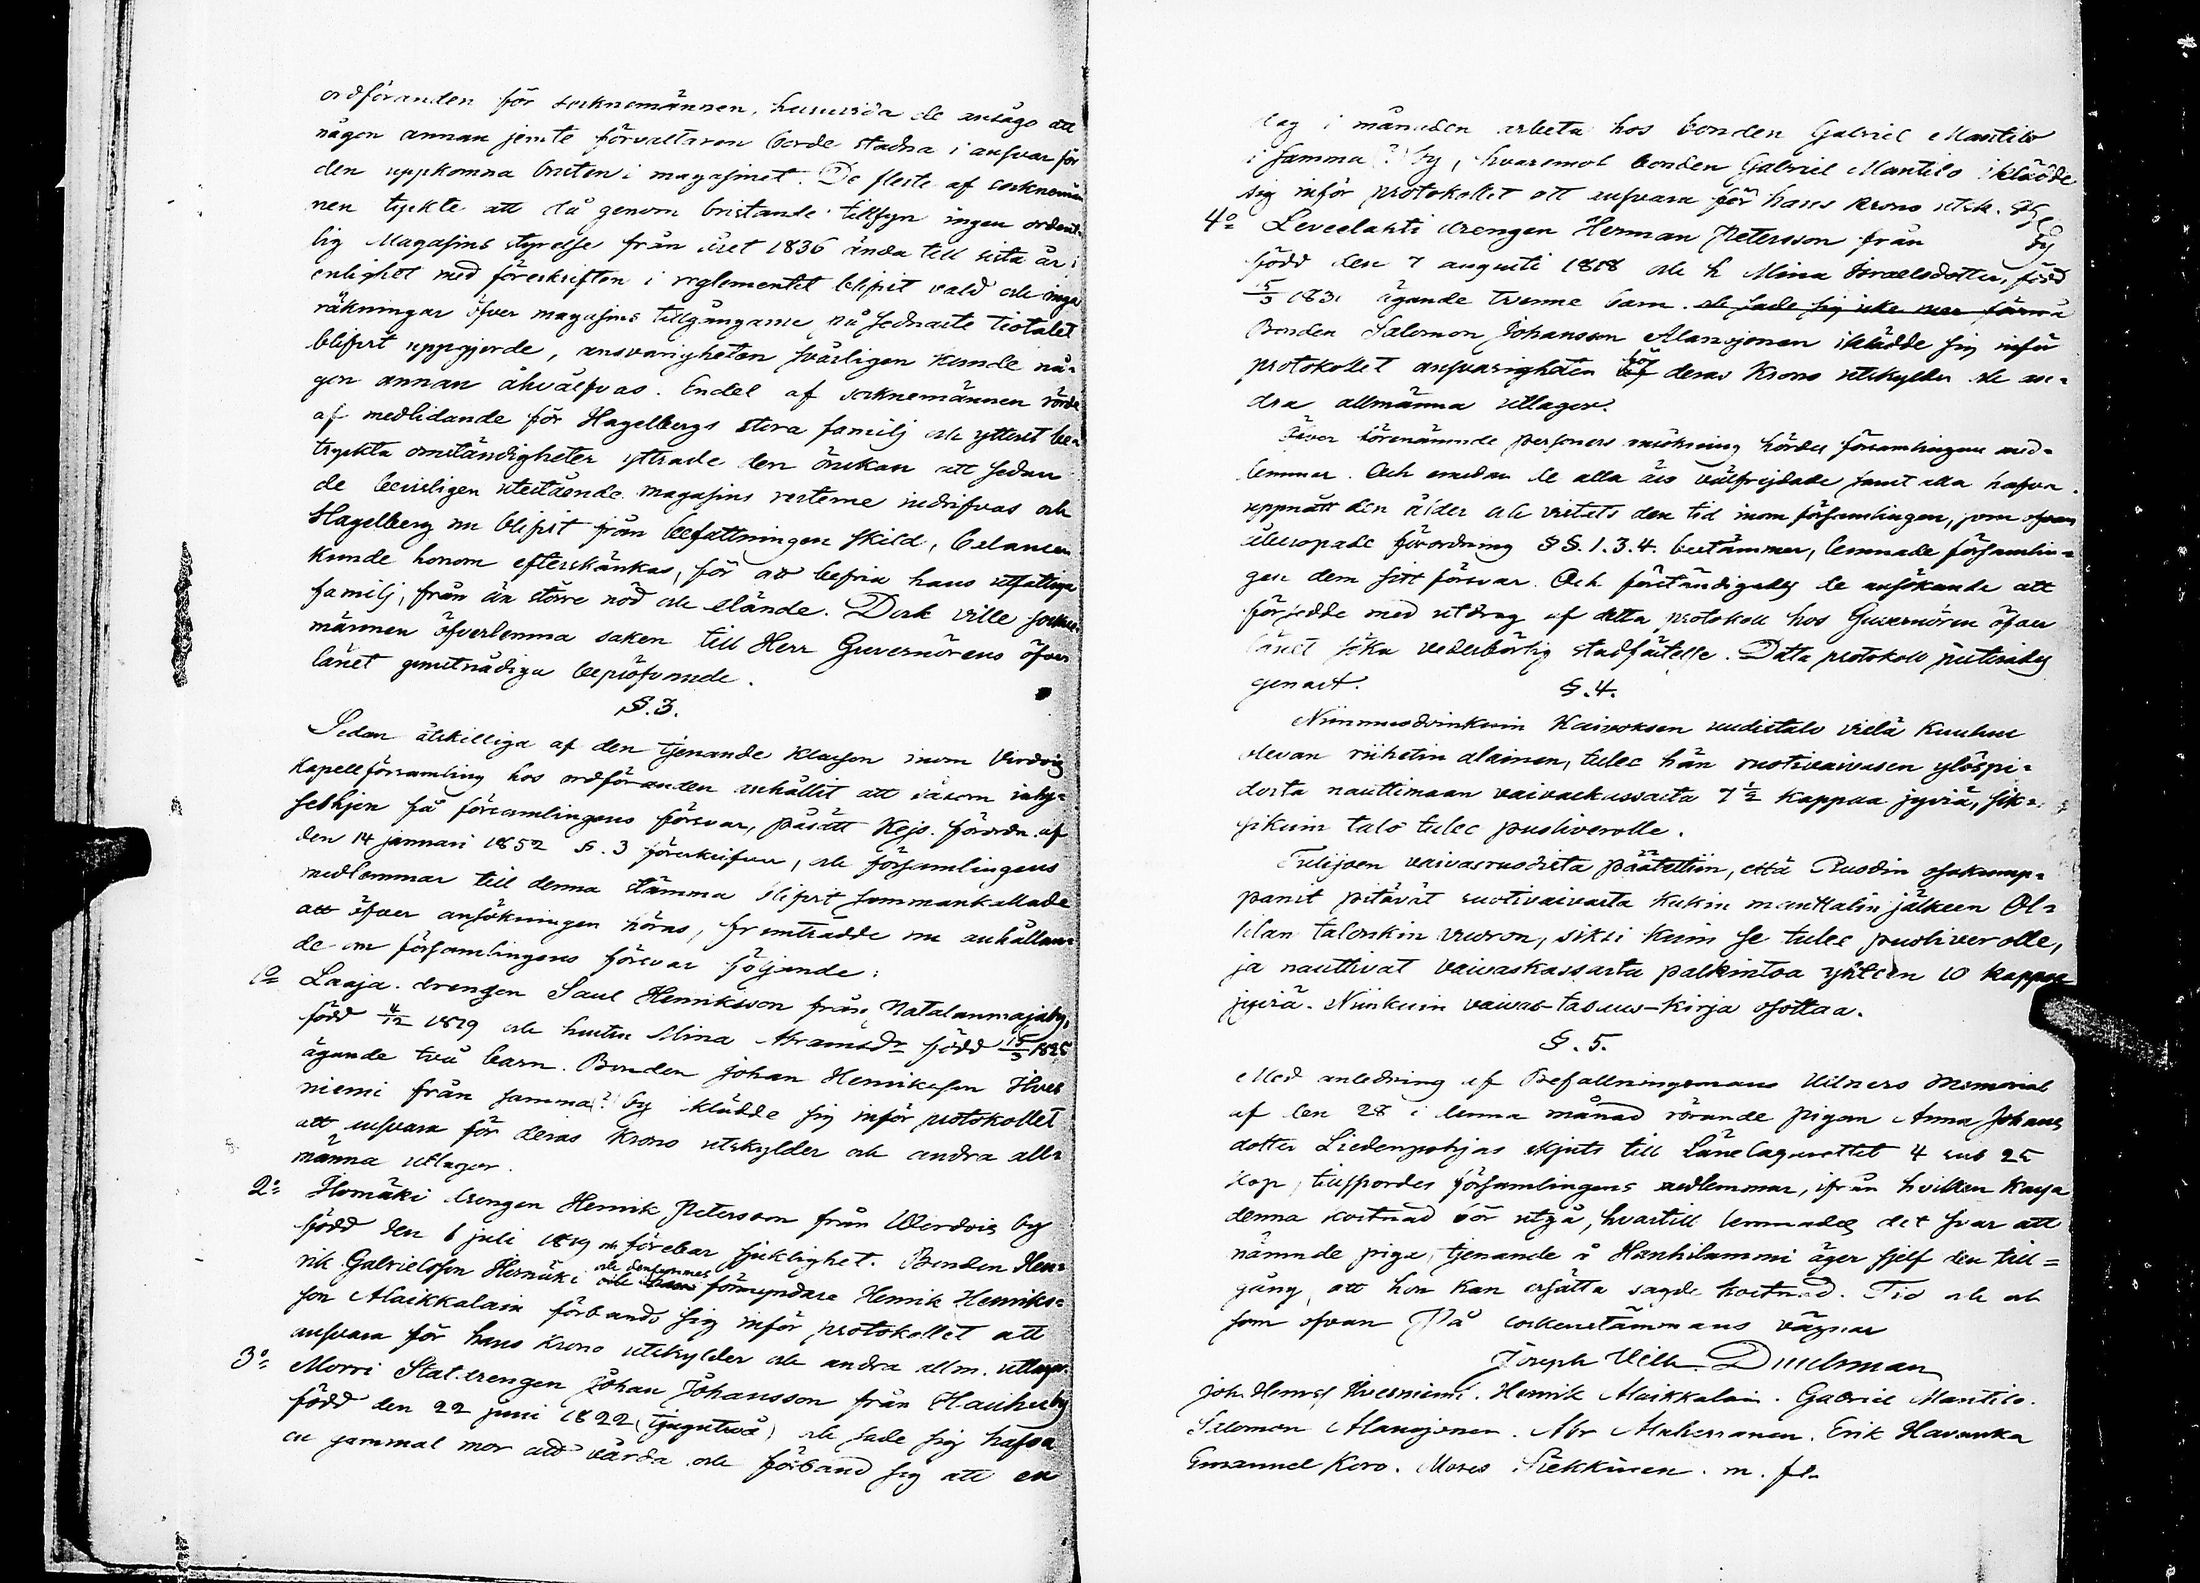 ordföranden för socknemännen, huruvida de ansågo att
någon annan jemte förvaltaren borde stadna i ansvar för
den uppkomna bristen i magasinet. De fleste af socknemän
nen tyckte att då genom bristande tillsyn ingen ordent-
lig Magasins styrelse från året 1836 ända till sista år i
enlighet med föreskriften i reglementet blifvit vald och inga
räkningar öfver magasins tillgångarne på sednaste tiotalet
blifvit uppgjorde, ansvarigheten svårligen kunde nå-
gon annan åhvälfvas. Endel af socknemännen rörde
af medlidande för Hagelbergs stora familj och ytterst be-
tryckta omständigheter yttrade den önskan att sedan
de bevisligen utestående magasins resterne indrifvas och
Hagelberg nu blifvit från befattningen skild, balancen
kunde honom efterskänkas, för att befria hans utfattiga
familj, från än större nöd och elände. Dock ville sockne-
männen öfverlemna saken till Herr Guvernörens öfver
länet gunstnådiga bepröfvande.
§. 3.
Sedan åtskilliga af den tjenande klassen inom Virdois
Kapellförsamling hos ordföranden anhållit att såsom inhy-
seshjon få församlingens försvar, påsätt Kejs. förordn. af
den 14 januari 1852 §. 3 föreskrifver, och församlingens
medlemmar till denna stämma blifvit sammankallade
att öfver ansökningen höras, framträdde nu anhållan-
de om församlingens försvar följande:
1o Laaja drengen Saul Henriksson från Natalanmajaby,
född 4/12 1829 och hustru Mina Abramsdr född 15/3 1825
ägande två barn. Bonden Johan Henriksson Ilves
niemi från samma (?) by iklädde sig inför protokollet
att ansvara för deras Krono utskylder och andra all-
männa utlagor.
2o Homäki drengen Henrik Petersson från Wirdois by
född den 6 juli 1819 och förebar sjuklighet. Bonden Hen-
rik Gabrielsson Homäki och densammes förmyndare Henrik Henriks-
son Alaikkalain förbands sig inför protokollet att
ansvara för hans Krono utskylder och andra allm. utlagor.
3o Morri Stat.drengen Johan Johansson från Hauheby
född den 22 juni 1822 (tjugutvå) och sade sig hafva
en gammal mor att vårda och förband sig att en
dag i månaden arbeta hos bonden Gabriel Mantilo
i samma (?) by, hvaremot bonden Gabriel Mantilo iklädde
sig inför protokollet att ansvara för hans krono utsk.
4o Leveelahti drengen Herman Petersson från by
född den 7 augusti 1818 och h Mina Israelsdotter, född
15/3 1831 ägande tvenne barn. och sade sig icke mer förmå
Bonden Salomon Johansson Alanojonen iklädde sig inför
protokollet ansvarigheten för deras Krono utskylder och an-
dra allmänna utlagor.
Öfver förenämnde personers ansökning hördes församlingens med-
lemmar. Och emedan de alla äro välfrejdade samt alla hafva
uppnått den ålder och vistats den tid inom församlingen, som ofvan
åberopade förordning §§. 1. 3. 4. bestämmer, lemnade församlin-
gen dem sitt försvar. Och förständigades de ansökande att
försedde med utdrag af detta protokoll hos Guvernören öfver
länet söka vederbörlig stadfästelse. Detta protokoll justerades
genast.
§. 4.
Nimmusdvinkuin Kaivoksen uudistalo vielä kuuluu
olevan riihetin alainen, tulee hän ruotivaivasen ylöspi-
dosta nauttimaan vaivaskassasta 7 ½ kappaa jyviä, sik-
sikuin talo tulee puoliverolle.
Tulijoen vaivasruodista päätettiin, että Ruodin osakump-
panit pitävät ruotivaivasta kukin manttalin jälkeen Ol-
lilan talonkin vuoron, siksi kuin se tulee puoliverolle,
ja nauttivat vaivaskassasta palkintoa yhteen 10 kappaa
jyviä. Niinkuin vaivas-tasaus-kirja osottaa.
§. 5.
Med anledning af Befallningsmans Uilners memorial
af den 28 i denna månad rörande pigan Anna Johans
dotter Liedenpohjas skjuts till Länelazarettet 4 rub 25
kop, tillspordes församlingens medlemmar, ifrån hvilken kassa
denna kostnad bör utgå, hvartill lemnades det svar att
nämnde piga, tjenande å Hanhilammi äger sjelf den till-
gång, att hon kan ersätta sagde kostnad. Tid och ort
som ofvan På sockenstämmans vägnar
Joseph Vilh. Duchman
Joh. Henrs Ilvesniemi. Henrik Alaikkalain. Gabriel Mantilo.
Salomon Alanojonen. Erik Havanka
Emanuel Kero. Moses Siekkinen. m. fl.